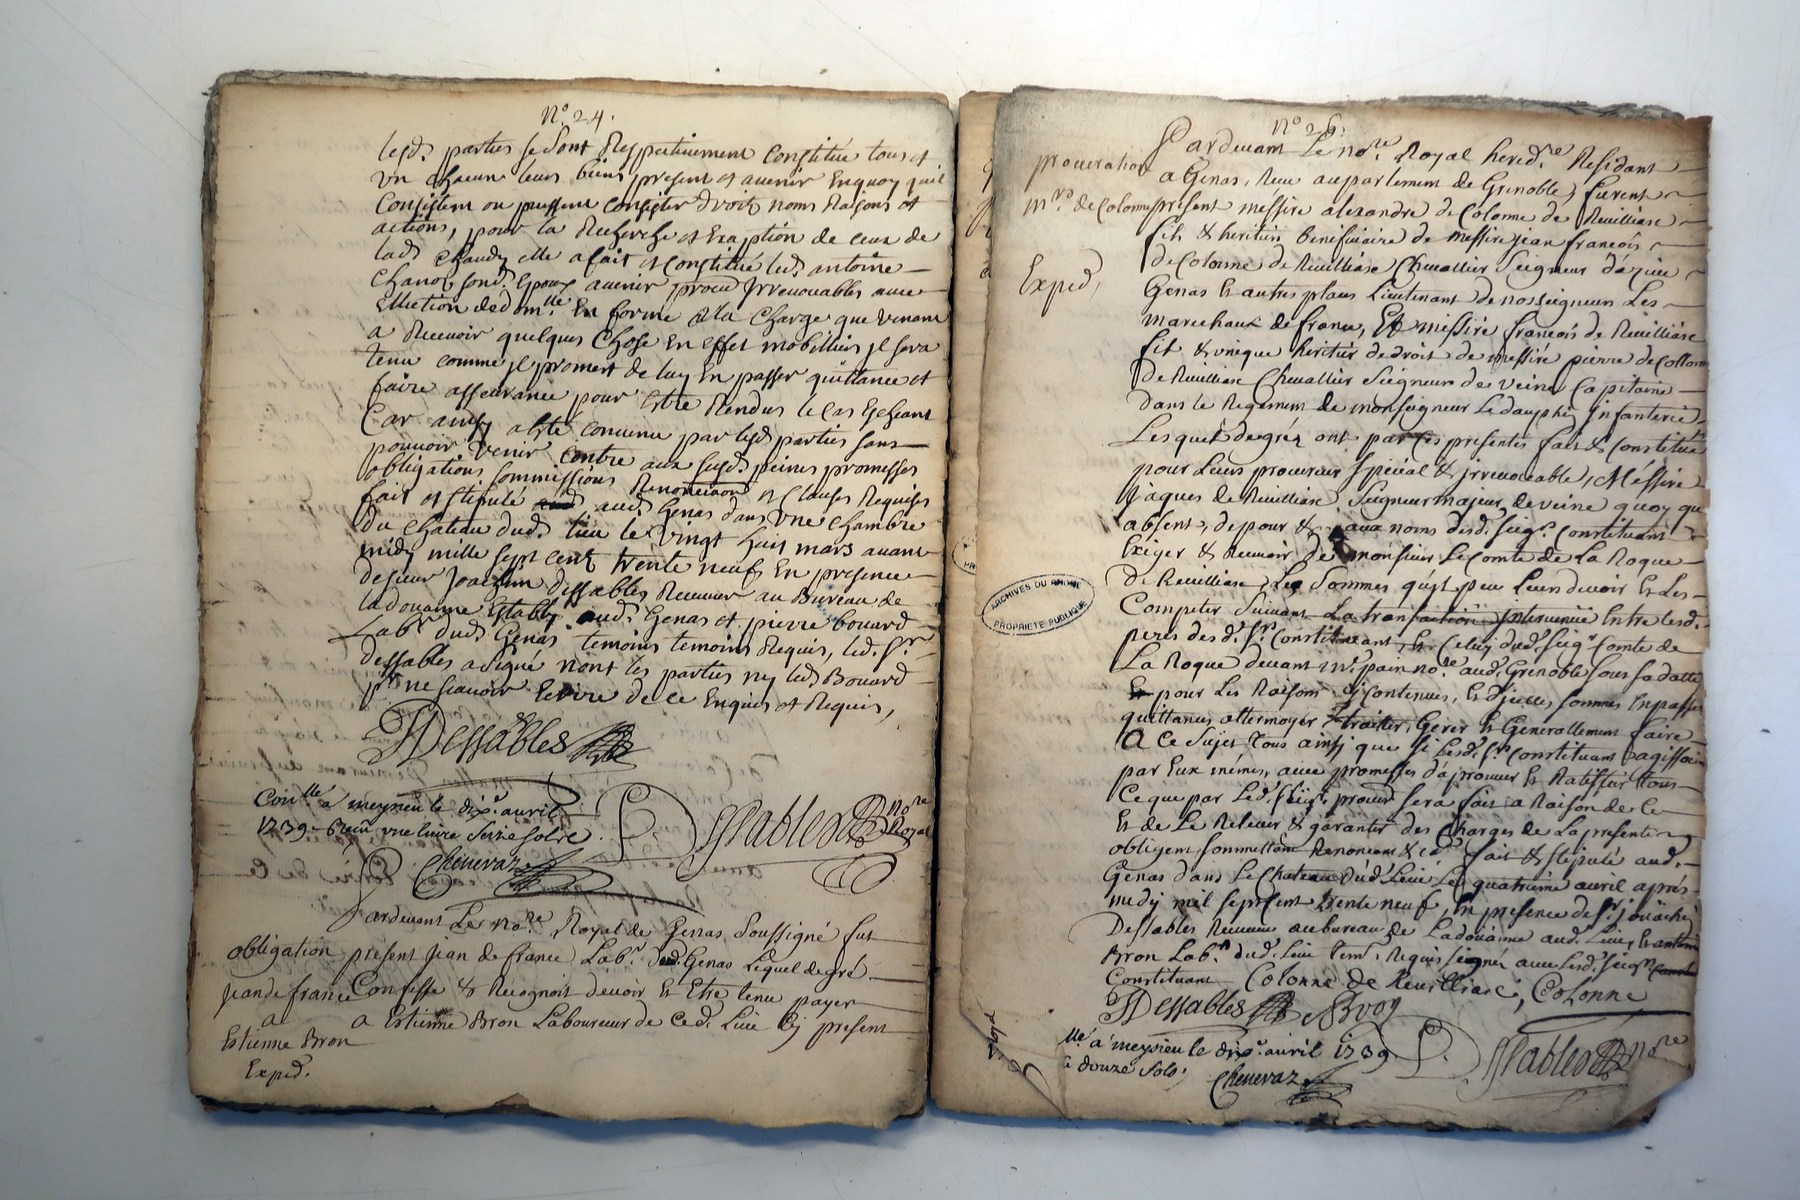 N.o 24.
lesd. parties se sont Respectivement Constitué tous et
vn chacun leurs biens present et auenir Enquoy quil
Consistent ou puissent consister droits noms Raisons et
actions, pour la Recherche et Exaption de ceux de
lad. chaudy elle a fait et constitué led. antoine
Chanoz sond. Epoux auenir procur Irreuouables auec
Ellection dedom.lle En forme et la Charge que venant
a Receuoir quelques Chose En effet mobilliers jl sera
tenu comme jl promert de luy En passer quittance et
faire asseurance pour Estre Rendus le Cas Escheant
Car ainsy a esté conuenu par lesd. parties sans
pouuoir venir contre aux susd. peines promesses
obligations soumissions Renonciaon et Clauses Requises
fait et stipulé aud. Genas dans vne chambre
du chateau dud. lieu le vingt huit mars auant
midy mille sept cent trente neuf En presence
de sieur Joachin dessables Receueur au Bureau de
la douanne Establi aud. Genas et pierre bouard
Lab.r dud. Genas temoins Requis, led. S.r
dessables a signé nont les parties ny led. Bouard
p.r ne scauoir Ecrire de ce Enquis et Requis,
JDessables
Con.llé a meyzieu le dix.e auril
1739 - Receu vne liure seize sols
Cheneuaz
P. Dessables No.re Royal
Pardeuant Le No.re Royal de Genas Soussigné fut
obligation present Jean de france Lab.r dud. Genas Lequel de gré
Jean de france Confesse & Recognoit deuoir Et Etre tenu payer
a a Estienne Bron Laboureur de Ced. Lieu Cy present
Estienne Bron
Exped.
N.o 26.
Pardeuant Le No.re Royal hered.re Residant
procuration a Genas, Reçeu au parlement de Grenoble, furent
M.rs de Colonne present messire alexandre de Colonne de Reuilliase
fils & heritier beneficiaire de messire jean francois
de Colonne de Reuilliase Cheuallier Seigneur d'azieu
Exped, Genas Et autres places Lieutenant de nosseigneurs Les
marechaux de france, Et messire francois de Reuilliase
fils & vnique heritier de droit de messire pierre de Collonne
de Reuilliase Cheuallier Seigneur de veine Capitaine
dans le Regiment de monseigneur Le dauphin infanterie
Lesquels de gréz ont par ces presentes fait & Constitué
pour Leurs procureur special & irreuocable, Méssire
jaques de Reuilliase Seigneur majeur de veine quoy que
absent, de pour & aux noms desd. seig.rs Constituant
Exiger & receuoir de monsieur Le Comte de La Roque
de Reuilliase Les Sommes quil peu Leur deuoir Et Les
Competer Suiuant La transaction interuenüe Entre lesd.
peres desd. S.rs Constituant, Et Celuy dud. seig.r Comte de
La Roque deuant M.e pain no.re aud. Grenoble sous sa datte
Et pour Les Raisons y contenues, Et d'jcelles sommes En passer
quittances attermoyer traiter, Gerer Et Generallement faire
A ce Sujet tous ainsy que si Lesd. S.rs Constituant agissoient
par Eux mémes, auec promesses d'aprouuer Et Ratiffier tous
Ce que par Led. seig.r procur sera fait a Raison de Ce
Et de Le Releuer & garantir des Charges de La presente
obligent, soumettant Renonceant & c.a fait & stipulé aud.
Genas dans Le Chateau dud. Lieu Le quatrieme auril aprés
midy mil sept cent trente neuf, En presence de S.r jouachin
Dessables Receueur au bureau de La douänne aud. Lieu, Et antoine
Bron Lab.r dud. Lieu tem.s Requis signez auec Lesd. seig.rs
Constituant Colonne de Reuilliase, Colonne
JDessables ABron
llé a meyzieu le dix.e auril 1739
douze sols;
Cheneuaz
P. Dessables No.re
ARCHIVES DU RHONE
PROPRIETE PUBLIQUE